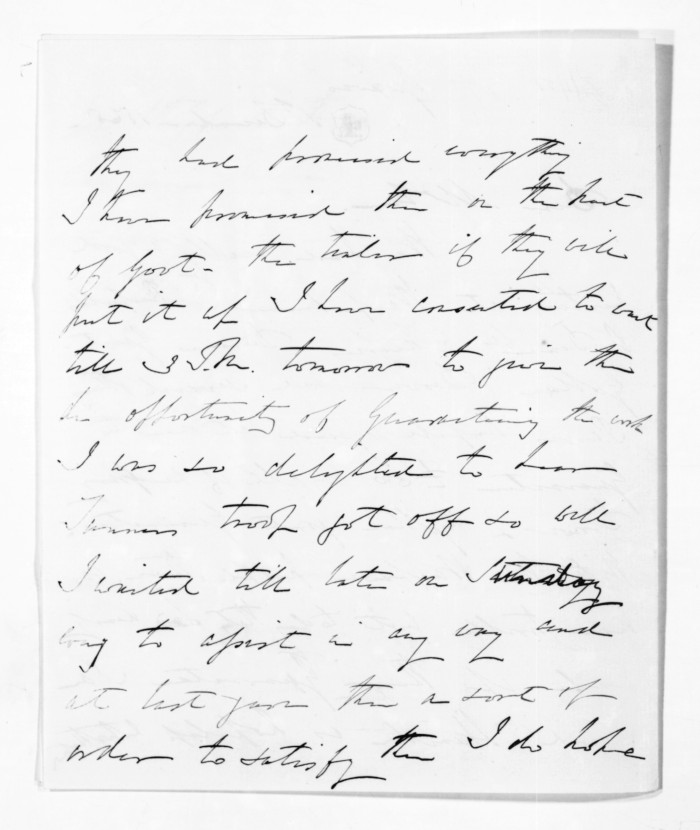 they had promised everything
I have promised them on the part
of Govt - the timber if they will
put it up I have consented to wait
till 3 P.M. tomorrow to give them
opportunity of Guaranteeing the work
I was so delighted to hear
troop got off so well
I waited till late on Saturday
to assist in any way and
at last gave them a sort of
order to satisfy them I do hope